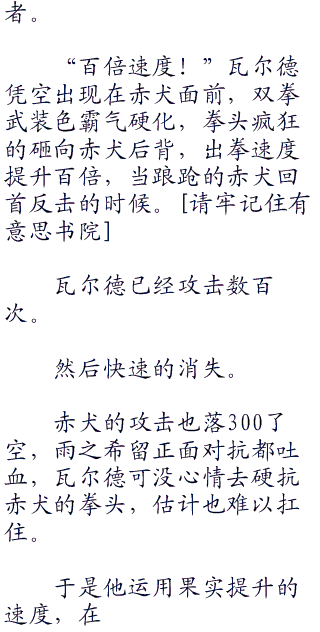 者。
“百倍速度！”瓦尔德
凭空出现在赤犬面前，双拳
武装色霸气硬化，拳头疯狂
的砸向赤犬后背，出拳速度
提升百倍，当踉跄的赤犬回
首反击的时候。[请牢记住有
意思书院]
瓦尔德已经攻击数百
次。
然后快速的消失。
赤犬的攻击也落300了
空，雨之希留正面对抗都吐
血，瓦尔德可没心情去硬抗
赤犬的拳头，估计也难以扛
住。
于是他运用果实提升的
速度，在